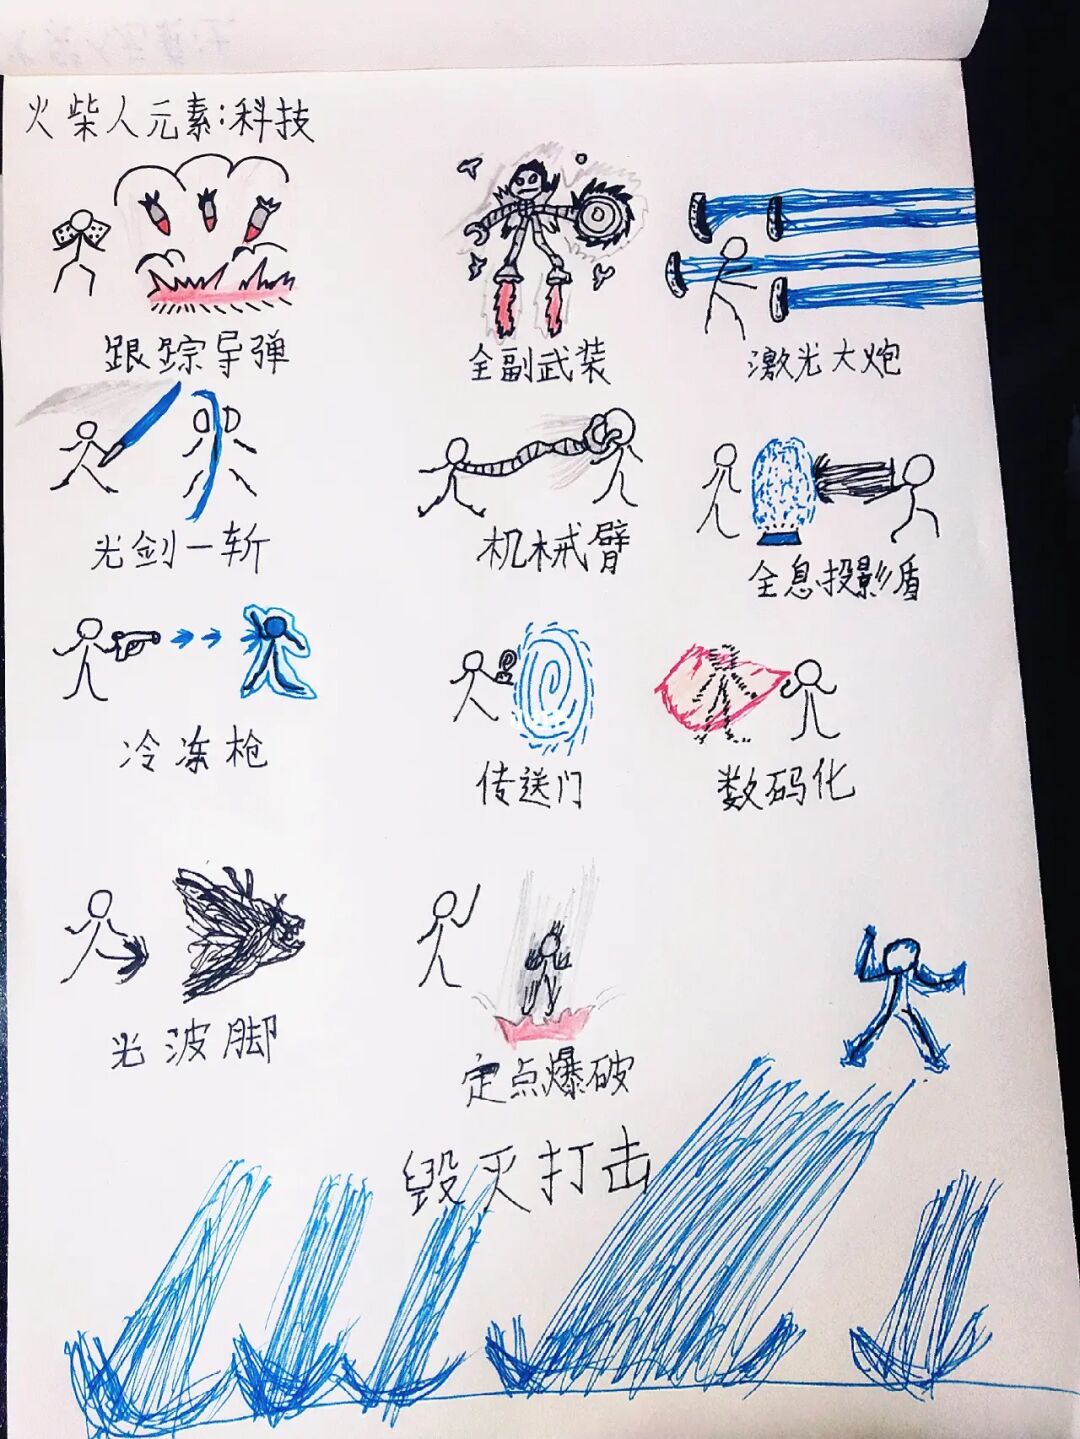 火柴人元素:科技
跟踪导弹
全副武装
激光大炮
光剑一斩
机械臂
全息投影盾
冷冻枪
传送门
数码化
光波脚
定点爆破
毁灭打击